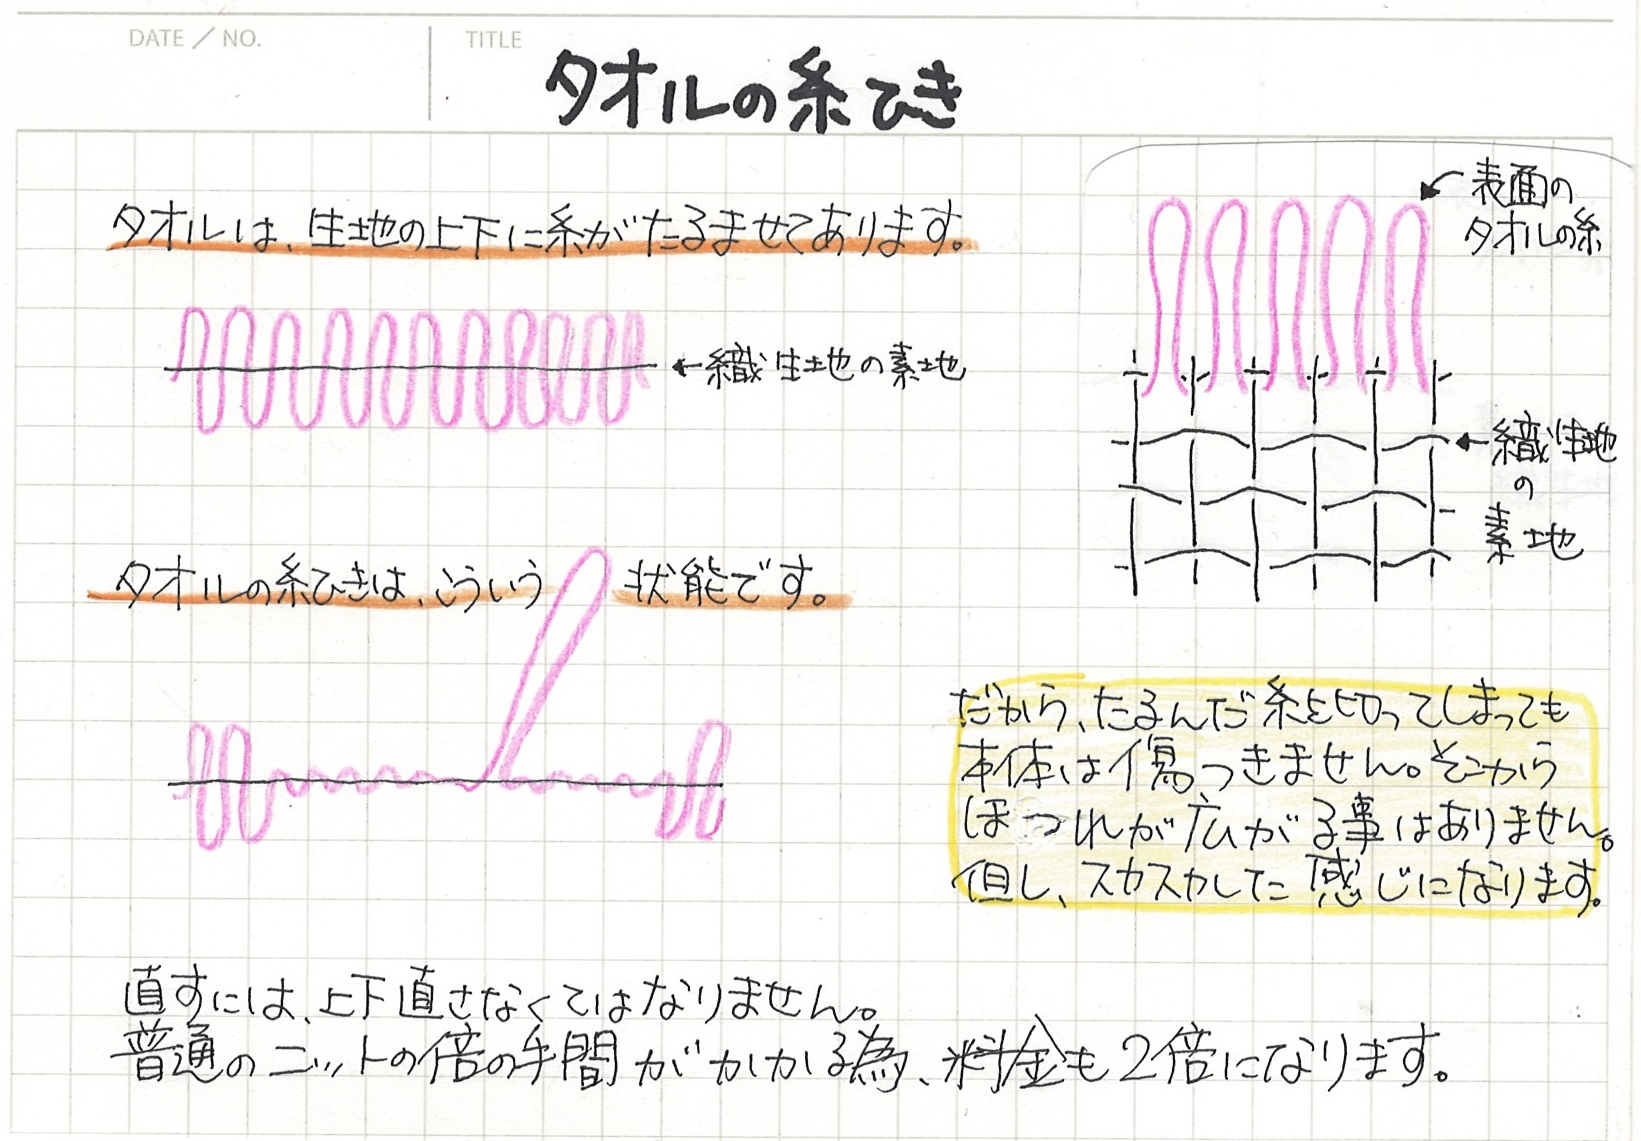 DATE / NO.
TITLE
タオルの糸ひき
タオルは、生地の上下に糸がたるませてあります。
←織生地の素地
表面の
タオルの糸
←織生地
の
素地
タオルの糸ひきは、こういう 状能です。
だから、たるんだ糸を切ってしまっても
本体は傷つきません。そこから
ほつれが広がる事はありません。
但し、スカスカした感じになります。
直すには、上下直さなくてはなりません。
普通のニットの倍の手間がかかる為、料金も2倍になります。